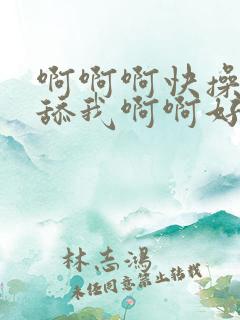 啊啊啊快操
舔我啊啊好
林志鸿
未经同意禁止转载